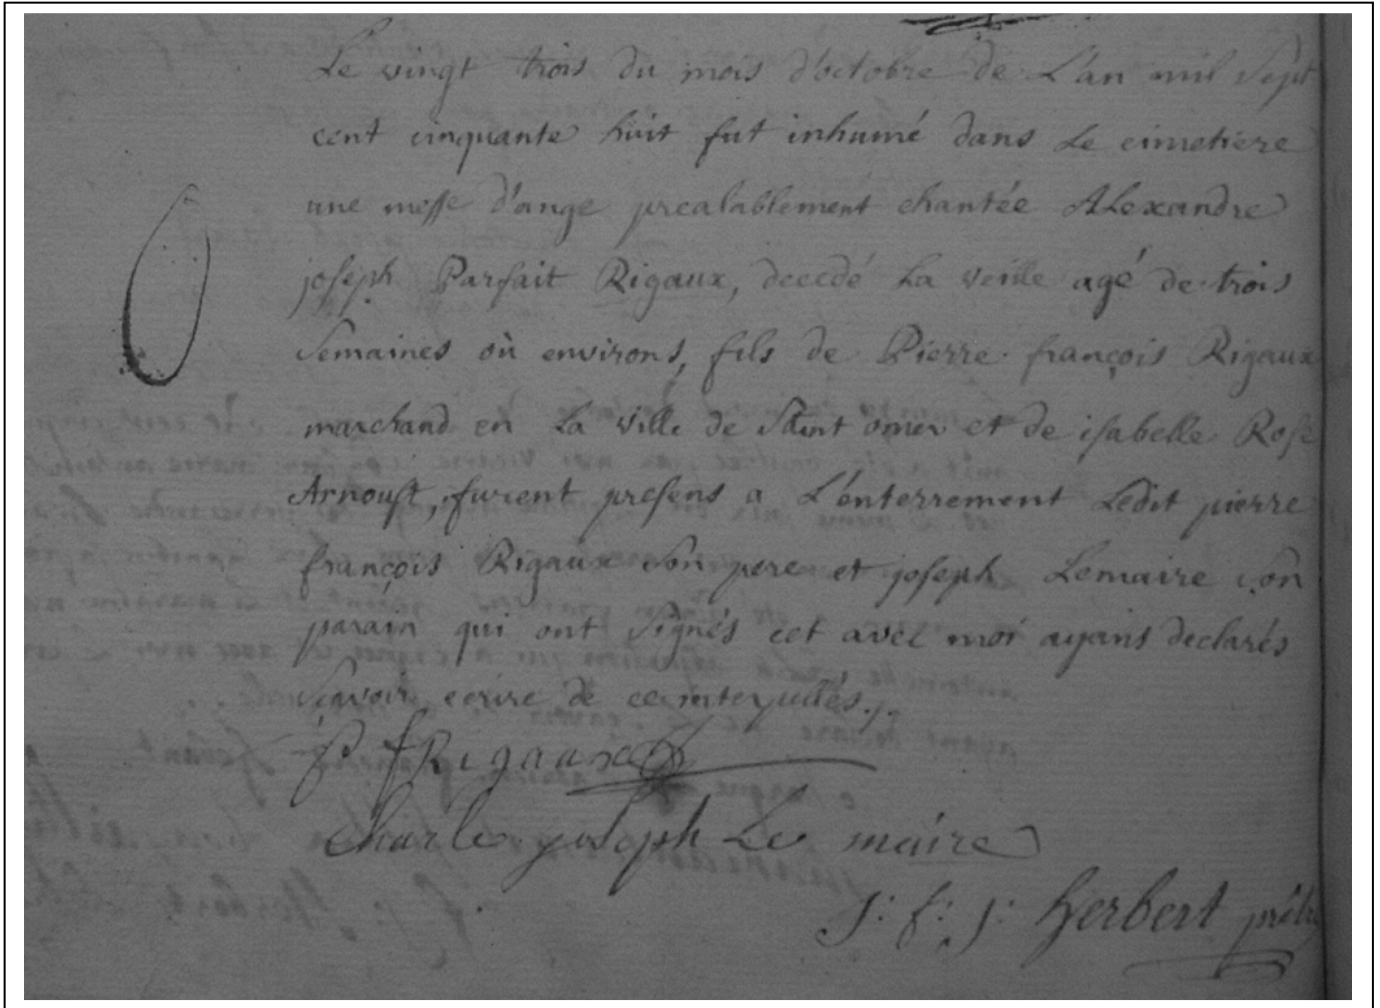 Le vingt trois du mois d'octobre de L'an mil sept
cent cinquante huit fut inhumé dans Le cimetiere
une messe d'ange prealablement chantée ALexandre
joseph Parfait Rigaux, decedé La veille agé de trois
semaines où environs, fils de Pierre françois Rigaux
marchand en La ville de Saint omer et de isabelle Rose
Arnoust, furent presens a L'enterrement Ledit pierre
françois Rigaux son pere et joseph Lemaire son
parain qui ont signés cet avec moi ayans declarés
sçavoir ecrire de ce interpellés./.
P f Rigaux
Charle joseph Le maire
J: f: J: herbert prêtre